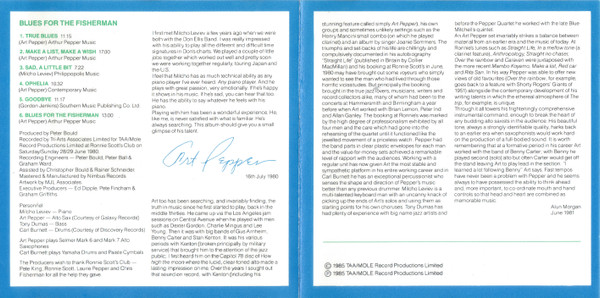 BLUES FOR THE FISHERMAN
1. TRUE BLUES 11:15
(Art Pepper) Arthur Pepper Music
2. MAKE A LIST, MAKE A WISH 17:00
(Art Pepper) Arthur Pepper Music
3. SAD, A LITTLE BIT 7:22
(Milcho Leviev) Philippopolis Music
4. OPHELIA 10:32
(Art Pepper) Contemporary Music
5. GOODBYE 11:17
(Gordon Jenkins) Southern Music Publishing Co. Ltd
6. BLUES FOR THE FISHERMAN 13:00
(Art Pepper) Arthur Pepper Music
Produced by Peter Bould
Recorded by Tri-Arts Associates Limited for TAA/Mole
Record Productions Limited at Ronnie Scott's Club on
Saturday/Sunday 28/29 June 1980.
Recording Engineers — Peter Bould, Peter Ball &
Graham Ward
Assisted by Christopher Bould & Rainer Schnieder
Mastered & Manufactured by Nimbus Records
Artwork by MJL Associates
Executive Producers — Ed Dipple, Pete Fincham &
Graham Griffiths
Personnel
Milcho Leviev — Piano
Art Pepper — Alto Sax (Courtesy of Galaxy Records)
Tony Dumas — Bass
Carl Burnett — Drums (Courtesy of Discovery Records)
Art Pepper plays Selmer Mark 6 and Mark 7 Alto
Saxophones
Carl Burnett plays Yamaha Drums and Paiste Cymbals
The Producers wish to thank Ronnie Scott's Club —
Pete King, Ronnie Scott, Laurie Pepper and Chris
Fishman for all the help they gave
I first met Milcho Leviev a few years ago when we were
both with the Don Ellis Band. I was really impressed
with his ability to play all the different and difficult time
signatures in Don's charts. We played a couple of little
gigs together which worked out well and pretty soon
we were working together regularly, touring Japan and
the U.S.
I feel that Milcho has as much technical ability as any
piano player I've ever heard. Any piano player. And he
plays with great passion, very emotionally. If he's happy
it shows in his music. If he's sad, you can hear that too.
He has the ability to say whatever he feels with his
piano.
Playing with him has been a wonderful experience. He,
like me, is never satisfied with what is familiar. He's
always searching. This album should give you a small
glimpse of his talent.
Art Pepper
16th July 1980
Art too has been searching, and invariably finding, the
truth in music since he first started to play, back in the
middle thirties. He came up via the Los Angeles jam
sessions on Central Avenue when he played with men
such as Dexter Gordon, Charlie Mingus and Lee
Young. Then it was with big bands of Gus Arnheim,
Benny Carter and Stan Kenton. It was his various
periods with Kenton (broken principally by military
service) that brought him to the attention of the jazz
public. I first heard him on the Capitol 78 disc of How
high the moon where the lucid, clear-toned alto made a
lasting impression on me. Over the years I sought out
that searcher record, with Kenton (including his
stunning feature called simply Art Pepper), his own
groups and sometimes unlikely settings such as the
Henry Mancini small combo (on which he played
clarinet) and an album by singer Joanie Sommers. The
triumphs and set-backs of his life are chillingly and
compulsively documented in his autobiography
"Straight Life" (published in Britain by Collier
MacMillan) and the booking at Ronnie Scott's in June,
1980 may have brought out some voyeurs who simply
wanted to see the man who had lived through those
horrific vicissitudes. But principally the booking
brought in the true jazz lovers, musicians, writers and
record collectors alike, many of whom had been to the
concerts at Hammersmith and Birmingham a year
before when Art worked with Brian Lemon, Peter Ind
and Allan Ganley. The booking at Ronnie's was marked
by the high degree of professionalism exhibited by all
four men and the care which had gone into the
rehearsing of the quartet until it functioned like the
jewelled movement of a precious watch. Pepper had
the band parts in clear plastic envelopes for each man
and the value-for-money sets achieved a remarkable
level of rapport with the audiences. Working with a
regular unit has now given Art the most stable and
sympathetic platform in his entire working career and in
Carl Burnett he has an exceptional percussionist who
senses the shape and direction of Pepper's music
better than any previous drummer. Milcho Leviev is a
much talented keyboard man with an uncanny knack of
picking up the ends of Art's solos and using them as
starting points for his own choruses. Tony Dumas has
had plenty of experience with big name jazz artists and
before the Pepper Quartet he worked with the late Blue
Mitchell's quintet.
An Art Pepper set invariably strikes a balance between
material from an earlier era and the music of today. At
Ronnie's tunes such as Straight Life, In a mellow tone (a
clarinet feature), What is this thing called love,
Over the rainbow and Cariban were juxtaposed with
the more recent Mambo Koyama, Make a list, Red car
and Rita San. In his way Pepper was able to offer new
views of old favourites (Over the rainbow, for example,
goes back to a feature with Shorty Rogers' Giants of
1951) alongside the contemporary development of his
writing talents in which the ethereal atmosphere of The
trip, for example, is unique.
Through it all towers his frighteningly comprehensive
instrumental command, enough to break the heart of
any budding alto saxists in the audience. His beautiful
tone, always a strongly identifiable quality, harks back
to an earlier era when saxophonists would work hard
on the production of a full-bodied sound. It is worth
remembering that at a formative period in his career Art
worked with the band of Benny Carter, with Benny he
played second (solo) alto but often Carter would get off
the stand leaving Art to play lead in the section. "I
learned a lot following Benny" Art says. Fast tempos
have never been a problem with Pepper and he seems
always to have possessed the ability to think ahead
and, more important, to co-ordinate mouth and hand
controls so that head and heart are combined as
memorable music.
Alun Morgan
June 1981
© 1985 TAA/MOLE Record Productions Limited
℗ 1985 TAA/MOLE Record Productions Limited